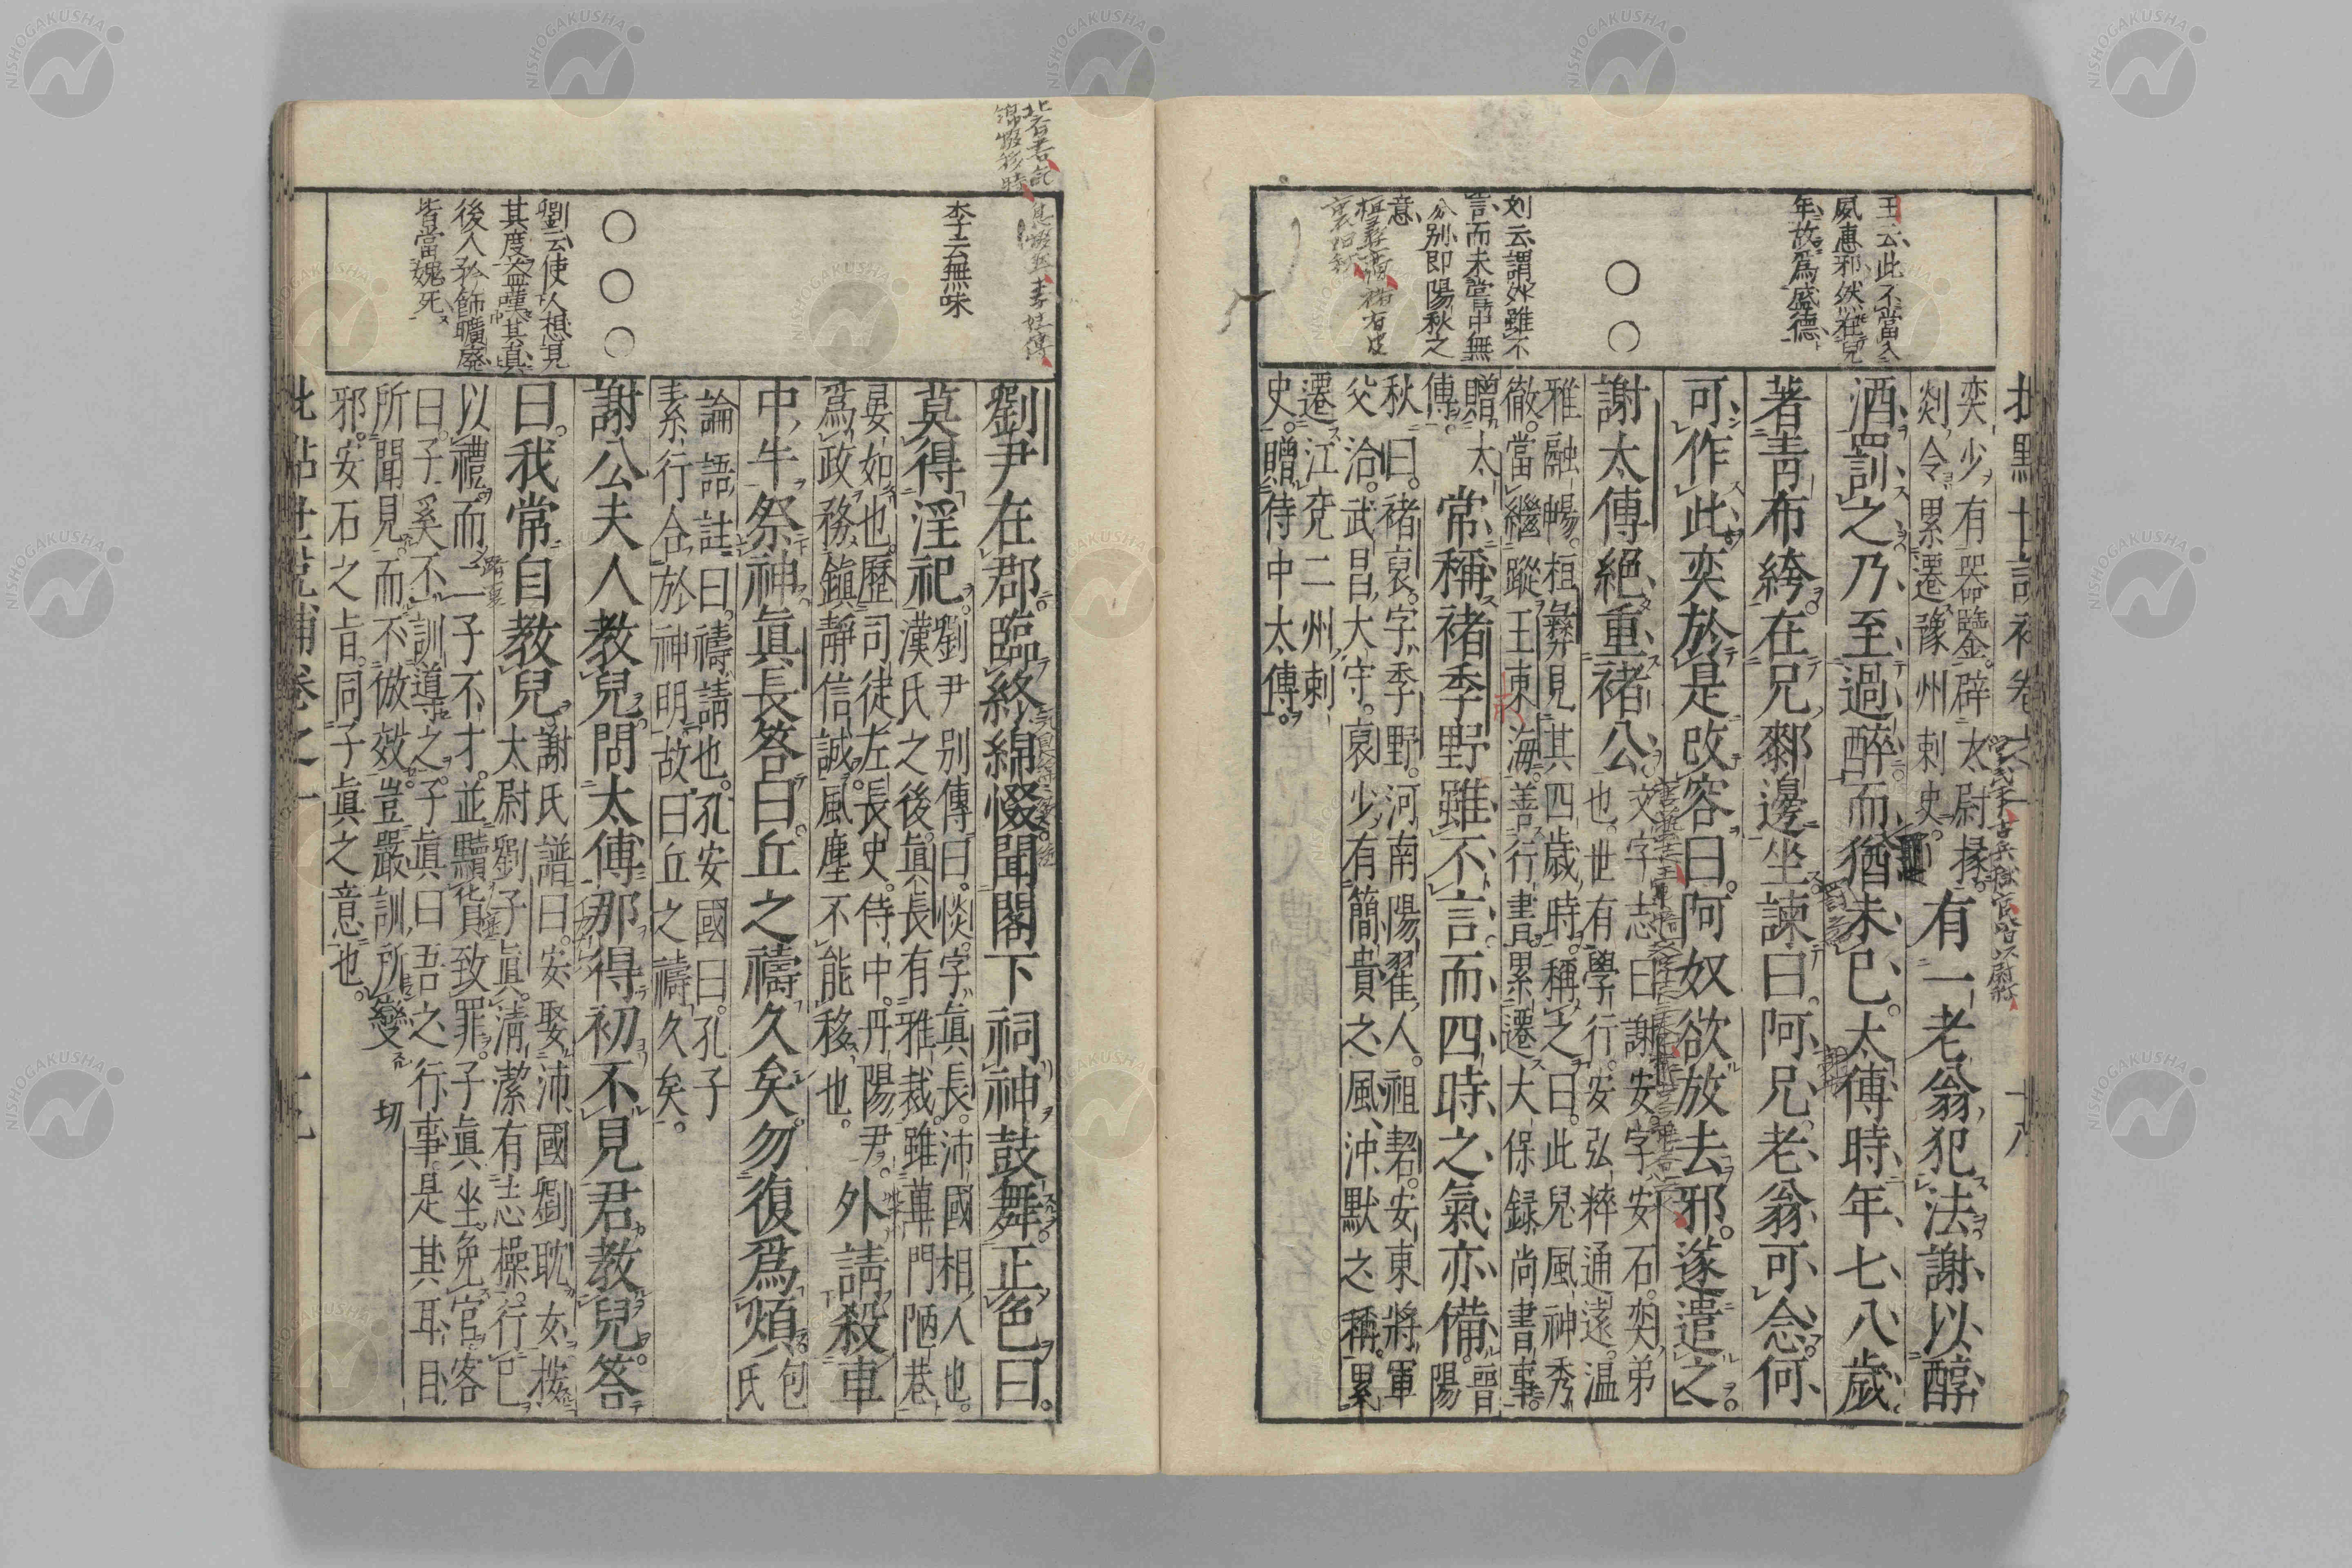 奕少有器鑒。辟太尉掾。
剡令。累遷豫州刺史。
有一老翁犯法謝以醇
酒罰之乃至過醉而猶未已。太傅時年七八歲
著青布絝在兄䣛邊坐諫曰。阿兄老翁可念何
可作此奕於是改容曰。阿奴欲放去邪。遂遣之
謝太傅絕重褚公
文字志曰謝安字安石。奕弟
也。世有學行。安弘粹通遠。温
雅融暢。桓彝見其四歲時。稱之曰。此兒風神秀
徹。當繼蹤王東海。善行書。累遷大保録尚書事。
贈太
傅。
常稱褚季野雖不言而四時之氣亦備。
晉
陽
秋曰。褚裒字季野。河南陽翟人。祖䂮。安東將軍
父洽。武昌大守。裒少有簡貴之風沖默之稱。累
遷江兗二州刺
史。贈侍中太傅。
王云此不當入
夙惠邪然在兒
年故爲盛德
○○
刘云謂外雖不
言而未嘗中無
分別即陽秋之
意
劉尹在郡臨終綿惙聞閣下祠神鼓舞正色曰。
莫得淫祀。
劉尹別傳曰。惔字真長。沛國相人也。
漢氏之後。眞長有雅裁。雖蓽門陋巷
晏如也。歷司徒左長史。侍中。丹陽尹。
爲政務鎮靜信誠。風塵不能移也。
外請殺車
中牛祭神眞長答曰。丘之禱久矣。勿復爲煩。
包
氏
論語註曰。禱請也。孔安國曰。孔子
素行合於神明。故曰丘之禱久矣。
謝公夫人教兒問太傅那得初不見君教兒。答
曰。我常自教兒。
謝氏譜曰。安娶沛國劉耽女。按
太尉劉子真。清潔有志操。行已
以禮。而二子不才。並黷貨致罪。子真坐免官。客
曰。子奚不訓導之。子真曰吾之行事。是其耳目
所聞見。而不倣效。豈嚴訓所變
邪。安石之旨。同子眞之意也。
李云無味
○○○
劉云使人想見
其度益嘆其真
後人矜飾曠廢
皆當媿死